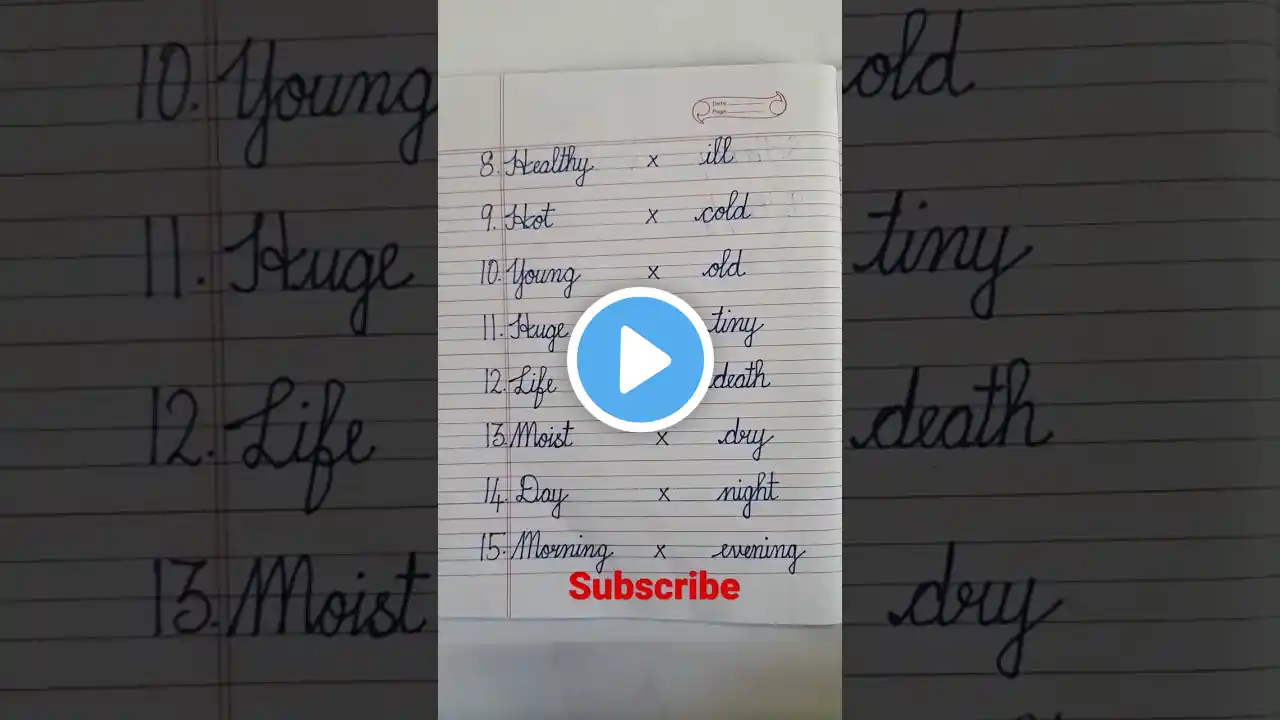 Date
Page
8. Healthy x ill
9. Hot x cold
10. Young x old
11. Huge tiny
12. Life death
13. Moist x dry
14. Day x night
15. Morning x evening
Subscribe
10. Young old
11. Huge tiny
12. Life death
13. Moist dry